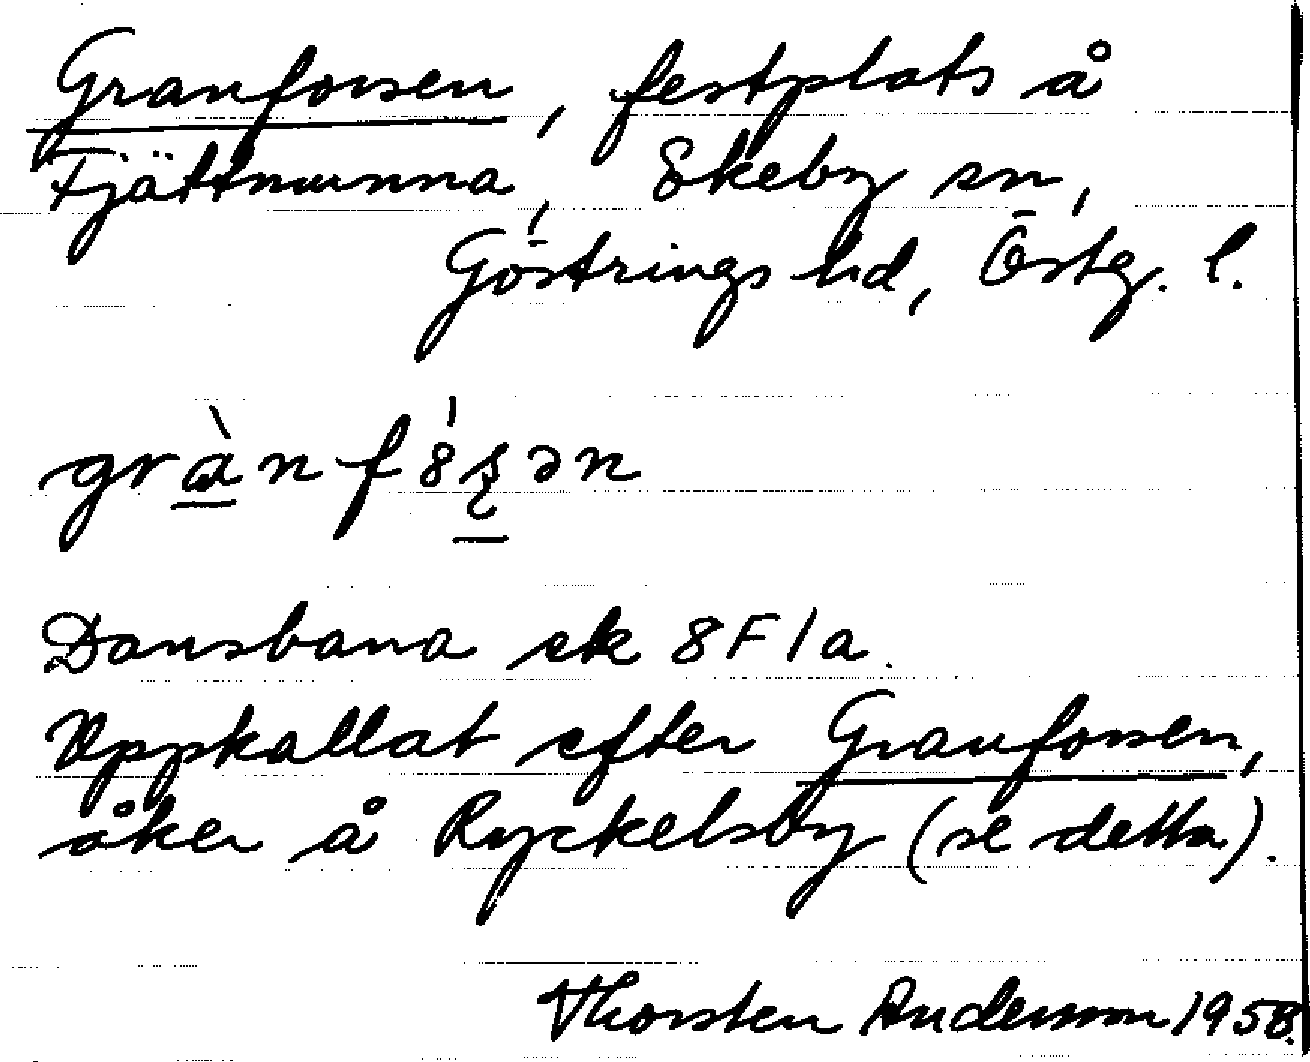 Granforsen, festplats å
Fjättmunna, Ekeby sn,
Göstrings hd, Östg. l.
gràn f8́ʂən
Dansbana ek 8F1a.
Uppkallat efter Granforsen,
åker å Ryckelsby (se detta).
Thorsten Andersson 1958.